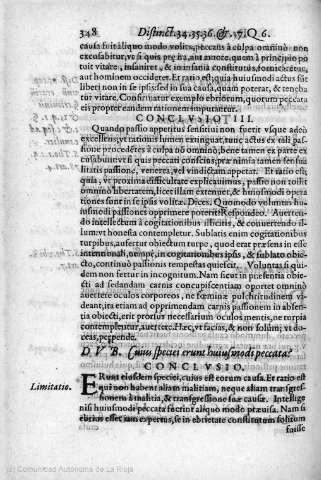 348 Distinct. 34. 35. 36. & .37. Q 6.
causa fuit aliquo modo volita, peccatis à culpa omninò non
excusabitur, vt si quis per ira, aut amore, quem à principio po
tuit vitare, insaniret, & in insania constitutus, fornicaretur,
aut hominem occideret. Et ratio est; quia huiusmodi actus sūt
liberi non in se ipsis, sed in sua causa, quam poterat, & teneba
tur vitare. Confirmatur exemplo ebriorum, quorum peccata
eis propter eandem rationem imputantur.
CONCLVSIO III.
Quando passio appetitus sensitiui non fuerit vsque adeò
excessiua, vt rationis lumen extinguat, tunc actus ex tali pas-
sione procedētes à culpa nō omninò, bene tamen ex parte ex
cusabūtur
litatis passione, venerea, vel vindictam appetat. Et ratio est;
quia, vt proxima difficultate explicauimus, passio non tollit
omninò libertatem, licet illam extenuet, & huiusmodi opera
tiones sunt in se ipsis volitæ. Dices. Quomodo voluntas hu-
iusmodi passiones opprimere poterit? Respondeo. Auerten-
do intellectum à cogitationibus illicitis, & conuertendo il-
lum vt honesta contempletur. Sublatis enim cogitationibus
turpibus, aufertur obiectum turpe, quod erat præsens in esse
intentionali, nempè, in cogitationibus ipsis, & sublato obie-
cto, continuò passionis tempestas quiescit. Voluntas si qui-
dem non fertur in incognitum. Nam sicut in præsentia obie-
cti ad sedandam carnis concupiscentiam oportet omninò
auertere oculos corporeos, ne fœminæ pulchritudinem vi-
deant, ita etiam ad opprimendam carnis passionem in absen-
tia obiecti, erit prorsus necessarium oculos mentis, ne turpia
contemplentur, auertere. Hæc, vt facias, & non solùm, vt do-
ceas, perpende.
D. V B. Cuius speciei erunt huiusmodi peccata?
CONCLVSIO.
Limitatio.
ERunt eiusdem speciei, cuius est eorum causa. Et ratio est
quia non habent aliam malitiam, neque aliam transgres-
sionem à malitia, & transgressione suæ causæ. Intellige
nisi huiusmodi peccata fuerint aliquo modo præuisa. Nam si
ebrius esset iam expertus, se in ebrietate constitutum solitum
fuisse
(c) Comunidad Autónoma de La Rioja